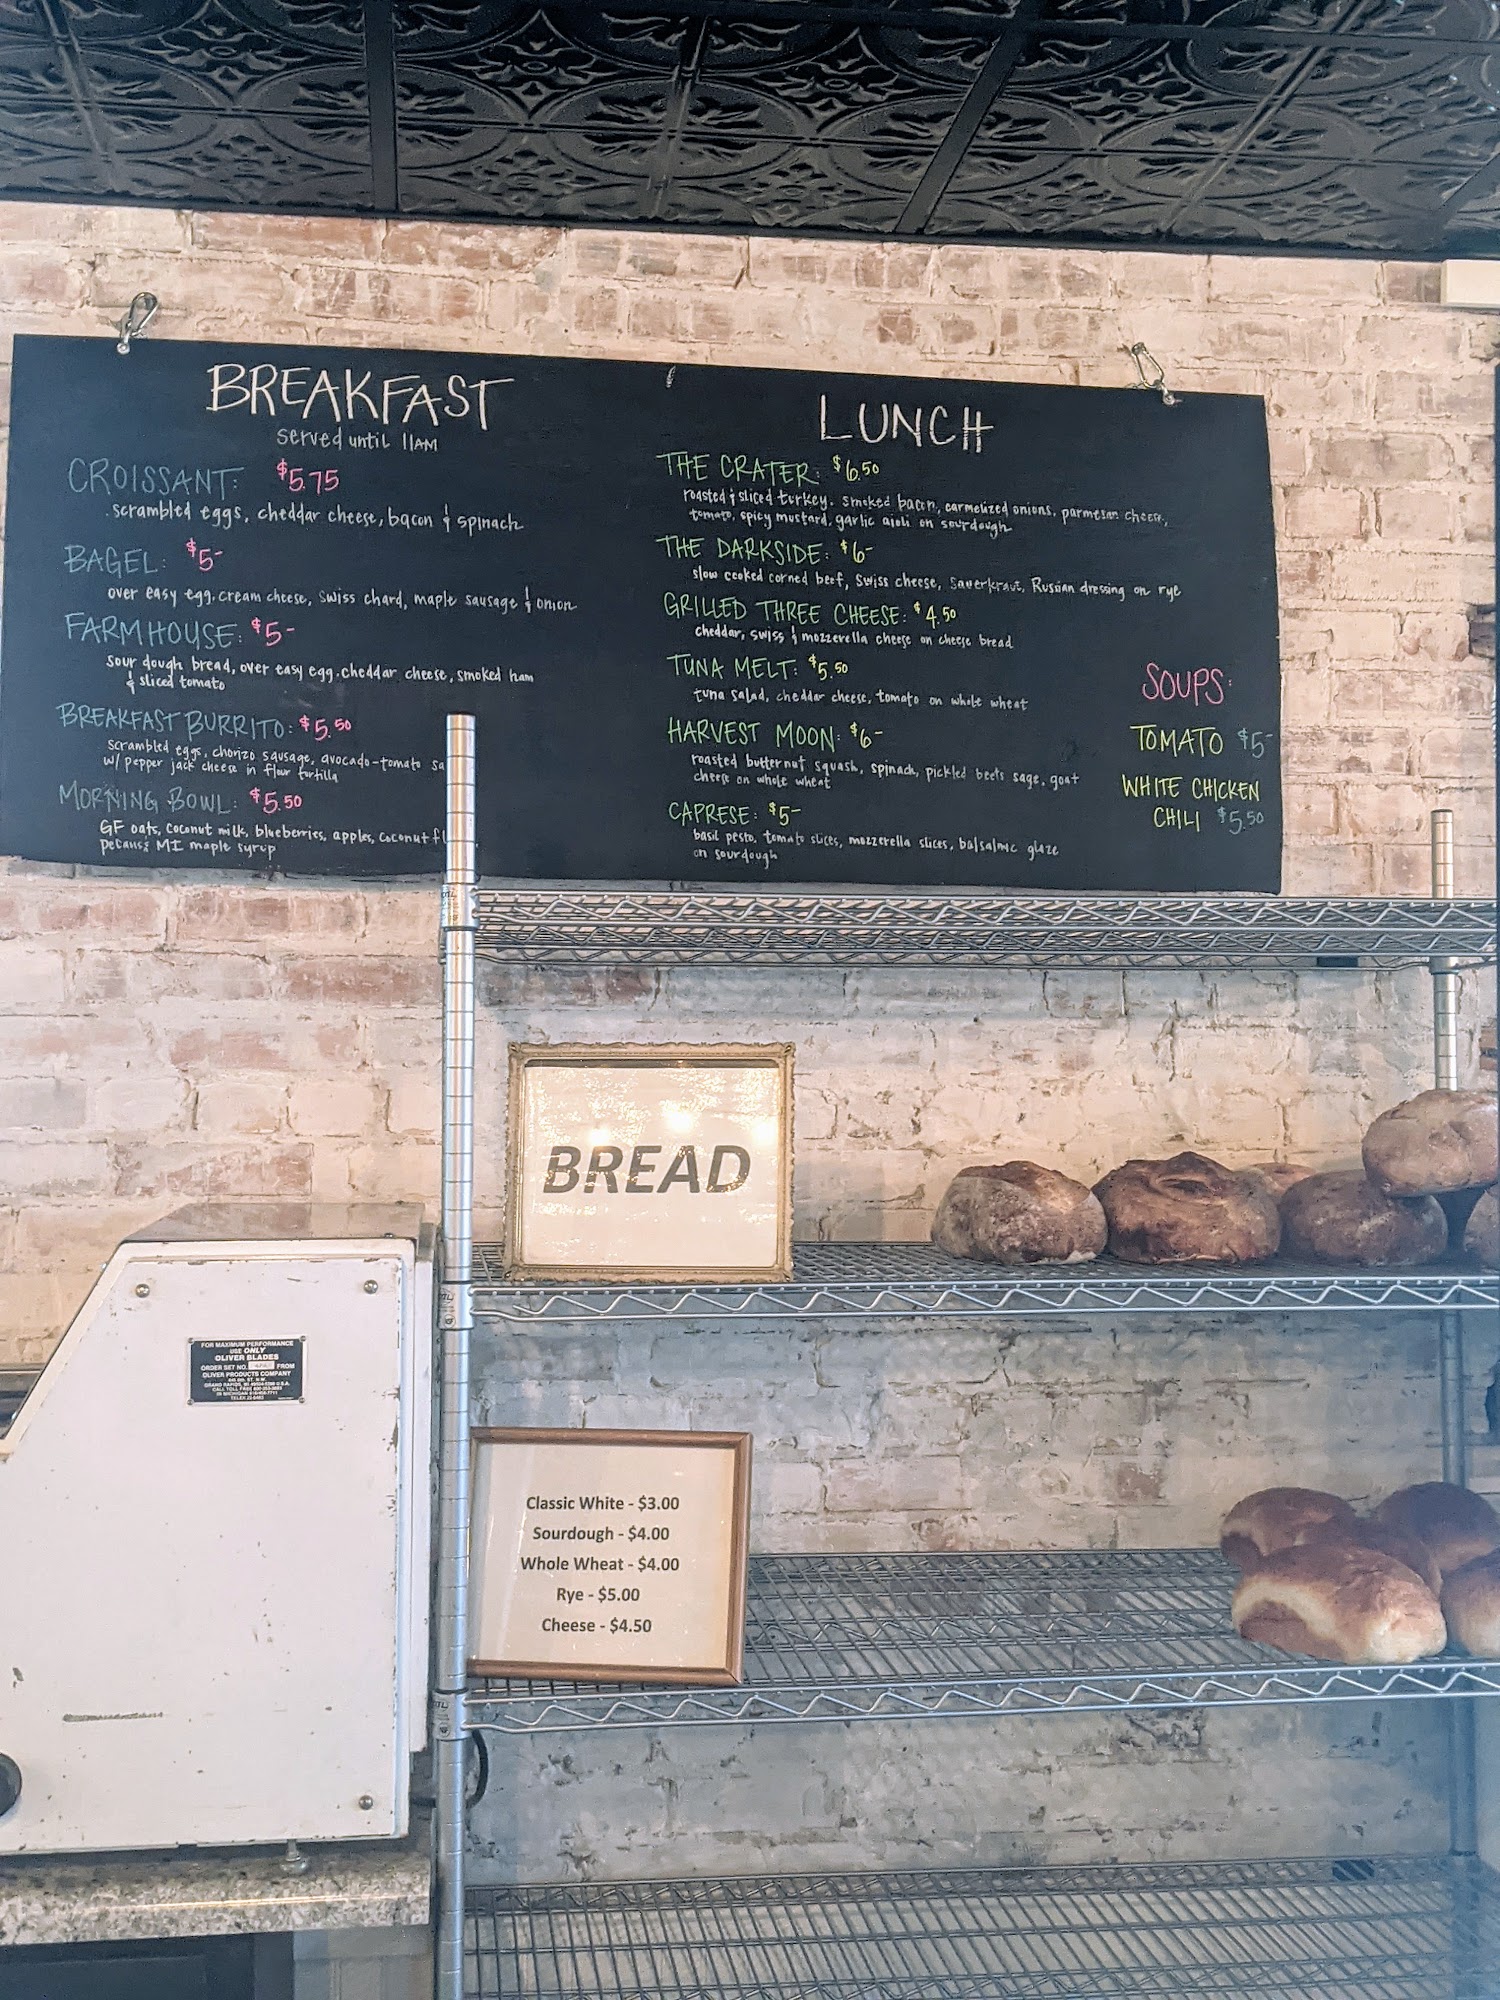 BREAKFAST
served until 11AM
CROISSANT: $5.75
scrambled eggs, cheddar cheese, bacon & spinach
BAGEL: $5-
over easy egg, cream cheese, swiss chard, maple sausage & onion
FARMHOUSE: $5-
sour dough bread, over easy egg, cheddar cheese, smoked ham
& sliced tomato
BREAKFAST BURRITO: $5.50
scrambled eggs, chorizo sausage, avocado-tomato sa
w/ pepper jack cheese in flour tortilla
MORNING BOWL: $5.50
GF oats, coconut milk, blueberries, apples, coconut fl
pecans & MI maple syrup
LUNCH
THE CRATER: $6.50
roasted & sliced turkey, smoked bacon, carmelized onions, parmesan cheese,
tomato, spicy mustard, garlic aioli on sourdough
THE DARKSIDE: $6-
slow cooked corned beef, Swiss cheese, Sauerkraut, Russian dressing on rye
GRILLED THREE CHEESE: $4.50
cheddar, swiss & mozzerella cheese on cheese bread
TUNA MELT: $5.50
tuna salad, cheddar cheese, tomato on whole wheat
HARVEST MOON: $6-
roasted butternut squash, spinach, pickled beets sage, goat
cheese on whole wheat
CAPRESE: $5-
basil pesto, tomato slices, mozzerella slices, balsalmic glaze
on sourdough
SOUPS:
TOMATO $5-
WHITE CHICKEN
CHILI $5.50
BREAD
FOR MAXIMUM PERFORMANCE
USE ONLY
OLIVER BLADES
ORDER SET NO. FROM
OLIVER PRODUCTS COMPANY
Classic White - $3.00
Sourdough - $4.00
Whole Wheat - $4.00
Rye - $5.00
Cheese - $4.50